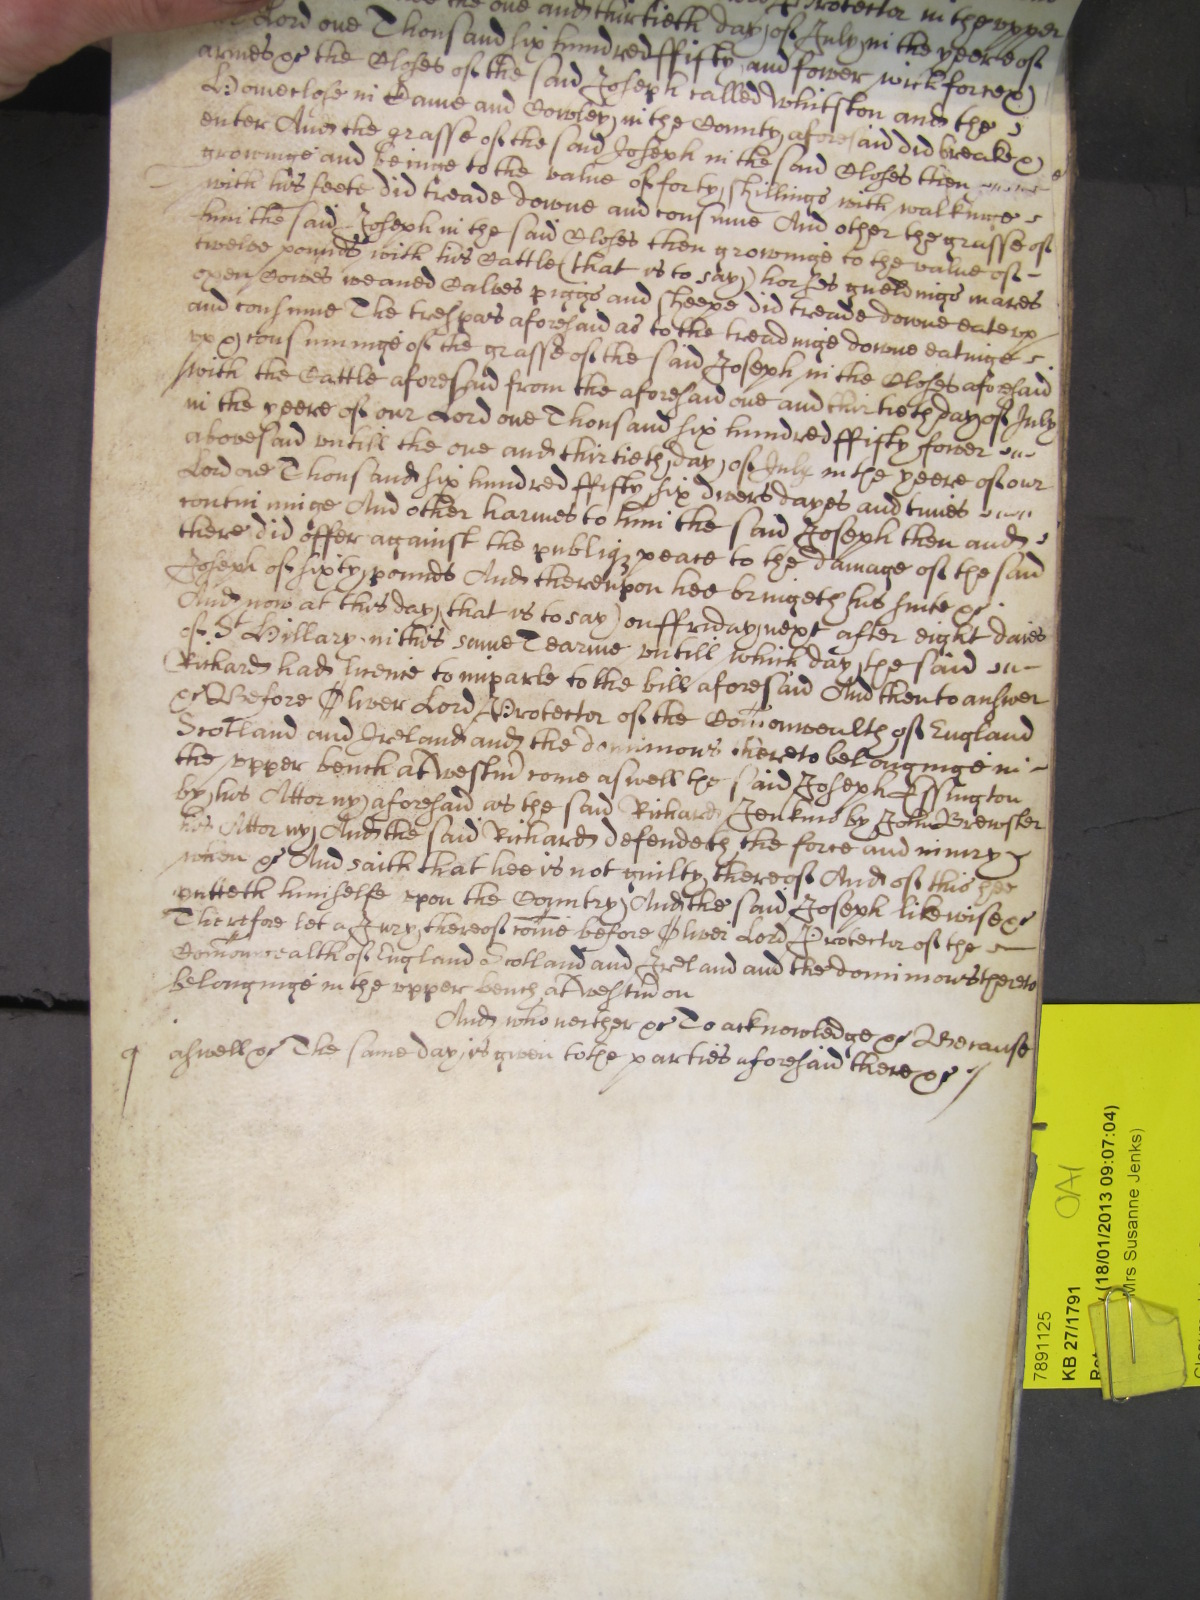 the one and thirtieth day of July in the yeere of
Lord one Thousand six hundred ffifty and fower with force &
armes &c the Closes of the said Joseph called Whitston and the
Homeclose in Came and Cowley in the County aforesaid did breake &
enter And the grasse of the said Joseph in the said Closes then
growinge and beinge to the value of forty shillings with walkinge
with his feete did treade downe and consume And other the grasse of
him the said Joseph in the said Closes then growinge to the value of
twelve pounds with his Cattle (that is to say) horses gueldings mares
oxen Cowes weaned Calves piggs and sheepe did treade downe eate vp
and consume The trespas aforesaid as to the treadinge downe eatinge
vp & consuminge of the grasse of the said Joseph in the Closes aforesaid
with the Cattle aforesaid from the aforesaid one and thirtieth day of July
in the yeere of our Lord one Thousand six hundred ffifty ffower
abovesaid vntill the one and thirtieth day of July in the yeere of our
Lord one Thousand six hundred ffifty six divers dayes and times
continuinge And other harmes to him the said Joseph then and
there did offer against the publiq peace to the damage of the said
Joseph of sixty pounds And thereupon hee bringeth his suite &c
And now at this day (that is to say) on ffriday next after eight daies
of St Hillary in this same Tearme vntill which day the said
Richard had licence to imparle to the bill aforesaid And then to answer
&c Before Oliver Lord Protector of the Comonwealth of England
Scotland and Ireland and the dominions thereto belonginge in
the vpper bench at Westm come aswell the said Joseph Essington
by his Attorny aforesaid as the said Richard Jenkins by John Brewster
his Attorny And the said Richard defendeth the force and iniury
when &c And saith that hee is not guilty thereof And of this hee
putteth himselfe vpon the Country And the said Joseph likewise &c
Therefore let a Jury thereof come before Oliver Lord Protector of the
Comonwealth of England Scotland and Ireland and the dominions thereto
belonginge in the vpper bench at Westm on
And who neither &c To acknowledge &c Because
aswell &c The same day is given to the parties aforesaid there &c
7891125
KB 27/1791
OA1
(18/01/2013 09:07:04)
Mrs Susanne Jenks)